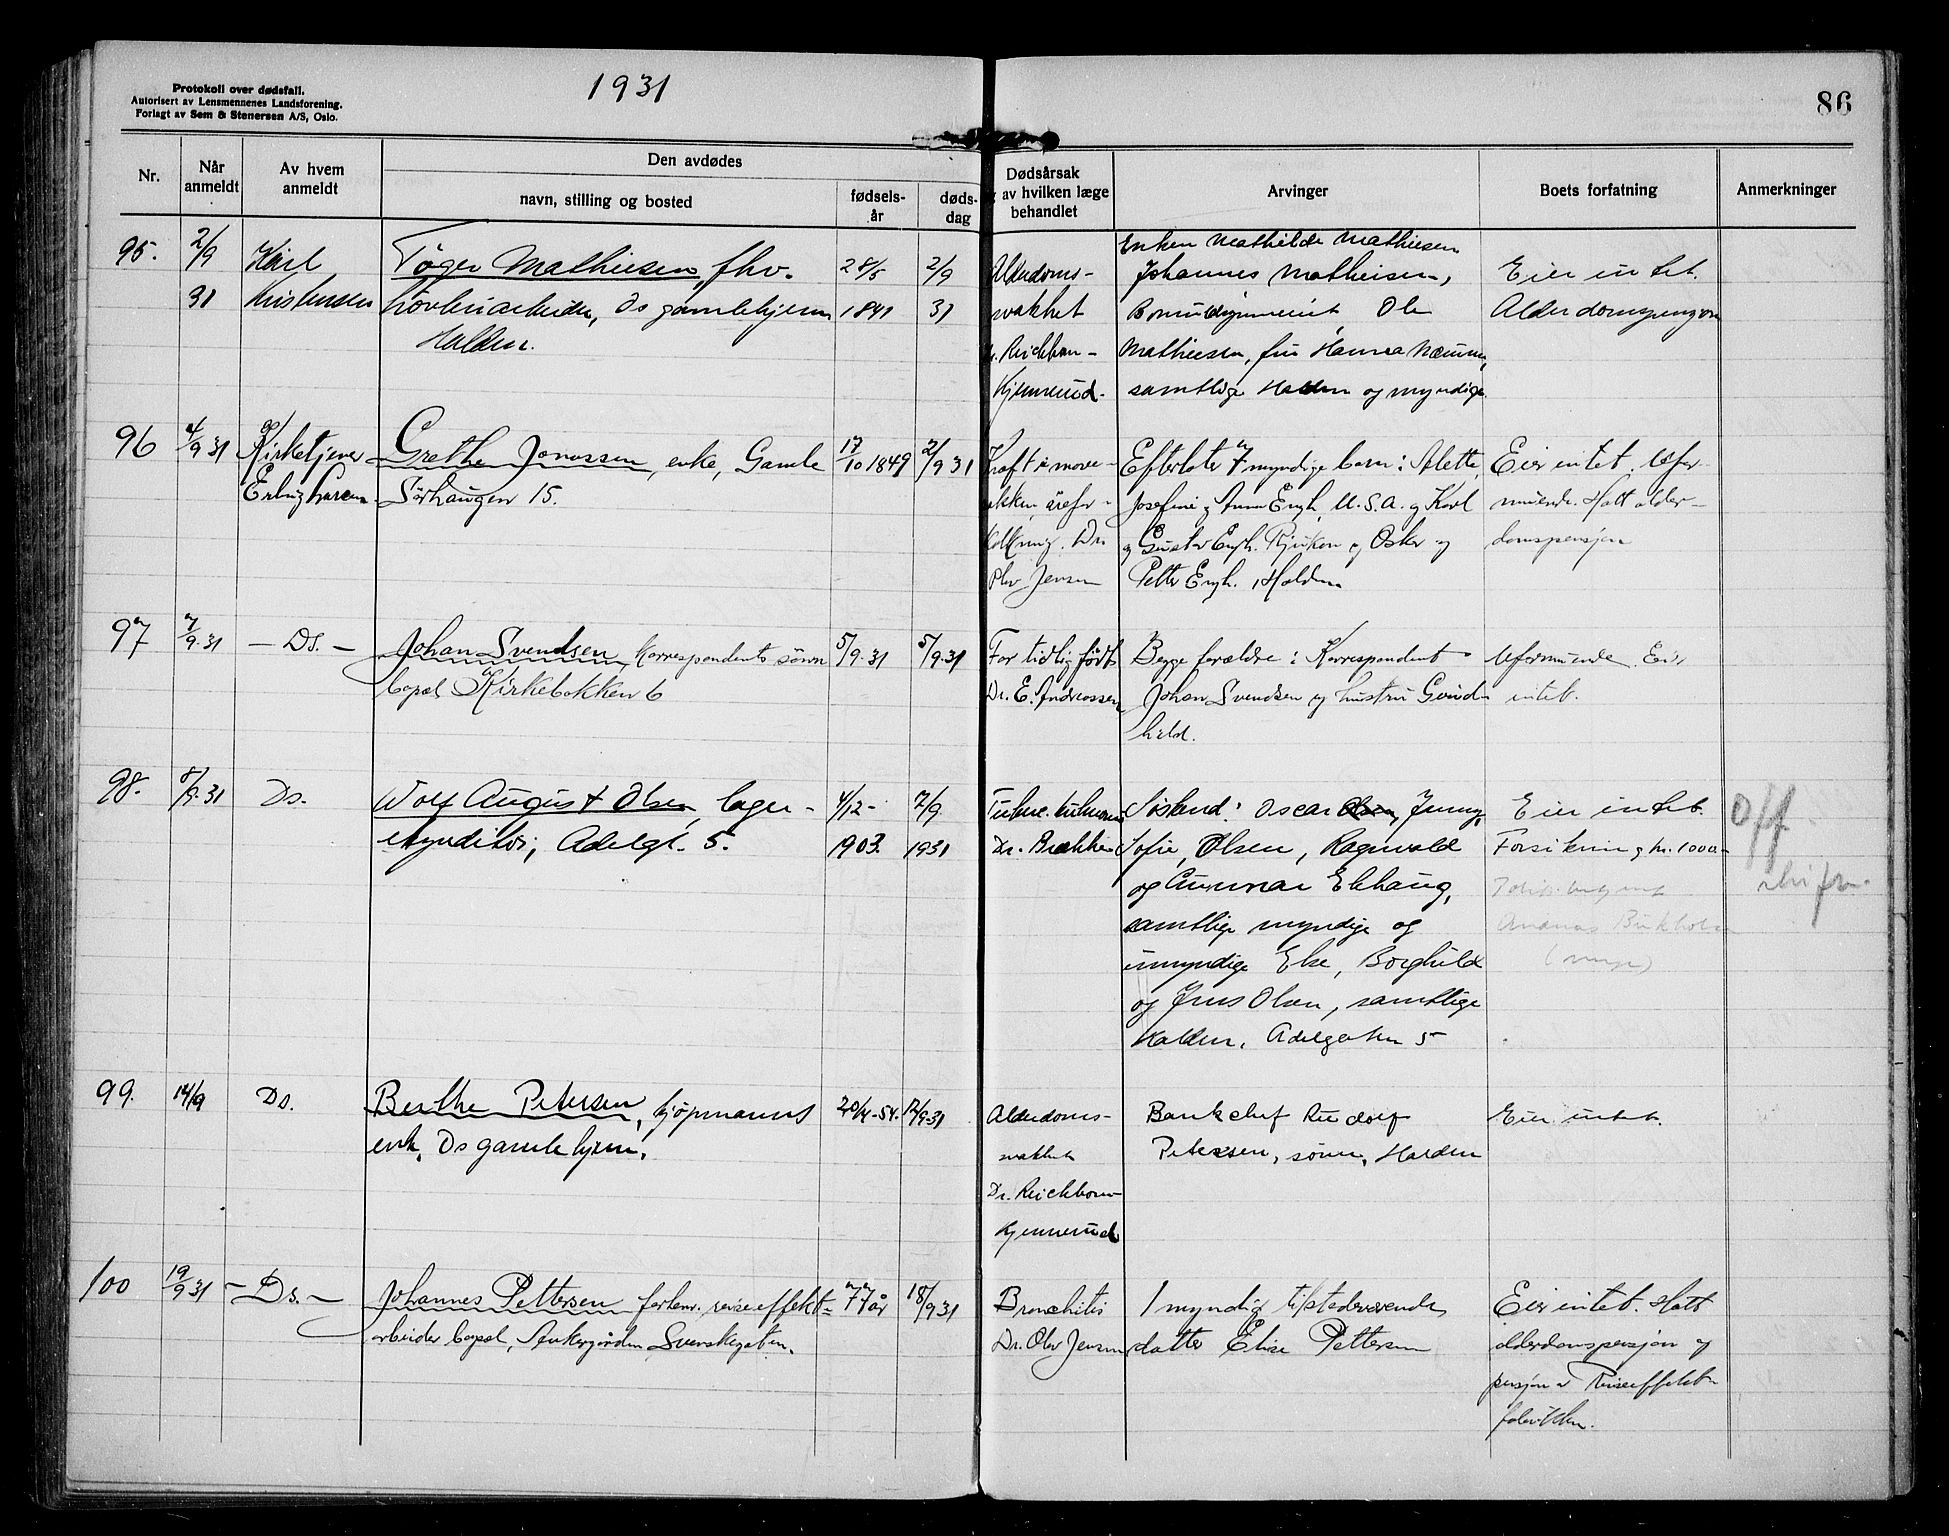 Protokoll over dødsfall.
Autorisert av Lensmennenes Landsforening.
Forlagt av Sem & Stenersen A/S, Oslo.
1931
86
Nr.
Når anmeldt
Av hvem anmeldt
Den avdødes
navn, stilling og bosted
fødsels-år
døds-dag
Dødsårsak
av hvilken læge
behandlet
Arvinger
Boets forfatning
Anmerkninger
95.
2/9
31
Karl
Kristensen
Tøger Mathiesen, fhv.
arbeider, Ds gamlehjem
Halden.
28/5
1841
2/9
31
Alderdoms-
svakhet
Reichborn-
Kjennerud.
Enken Mathilde Mathiesen
Johannes Mathiesen,
Ole
Mathiesen, fru Hanna
samtlige Halden og myndige.
Eier intet.
Alderdomspensjon
96
4/9 31
Kirketjener
Erling Larsen
Grethe Jonassen, enke, Gamle
Sørhaugen 15.
17/10 1849
2/9 31
Dr.
Olav Jensen
Efterlater 7 myndige barn: Alette,
Josefine og Anna Engh, U.S.A. og Karl
og Gustav Engh, Rjukan og Oskar og
Petter Engh, Halden.
Eier intet. Ufor-
muende. Hatt alder-
domspensjon
97
7/9.31
- Ds. -
Johan Svendsen, korrespondents sønn
bopel Kirkebakken 6
5/9.31
5/9.31
For tidlig født
Dr. E. Andreassen
Begge forældre: Korrespondent
Johan Svendsen og hustru Gund-
hild.
Uformuende. Eier
intet.
98.
8/9.31
Ds.
Wolf August Olsen, lager-
ekspeditør, Adelgt. 5.
4/12-
1903.
7/9.
1931
Dr. Brække
Søskend: Oscar Olsen, Jenny,
Sofie, Olsen, Ragnvald
og Gunnar Ekhaug,
samtlige myndige og
umyndige Else, Borghild
og Jens Olsen, samtlige
Halden, Adelgaten 5
Eier intet.
Forsikring kr. 1000.-
Off
skifte.
99.
14/9
Ds.
Berthe Petersen, kjøpmanns
enke, Ds gamlehjem.
20/4-54.
12/9.31
Alderdoms-
svakhet
Dr. Reichborn-
Kjennerud
Bankchef Rudolf
Petersen, sønn, Halden
Eier intet.
100
19/9 31
- Ds. -
Johannes Pettersen forhenv. reiseeffekt-
arbeider bopel, Ankergården Svenskegaten.
77 år
18/9 31
Bronchitis
Dr. Olav Jensen
1 myndig tilstedeværende
datter Elise Pettersen
Eier intet. Hatt
alderdomspensjon og
pensjon av Reiseeffekt
fabrikken.